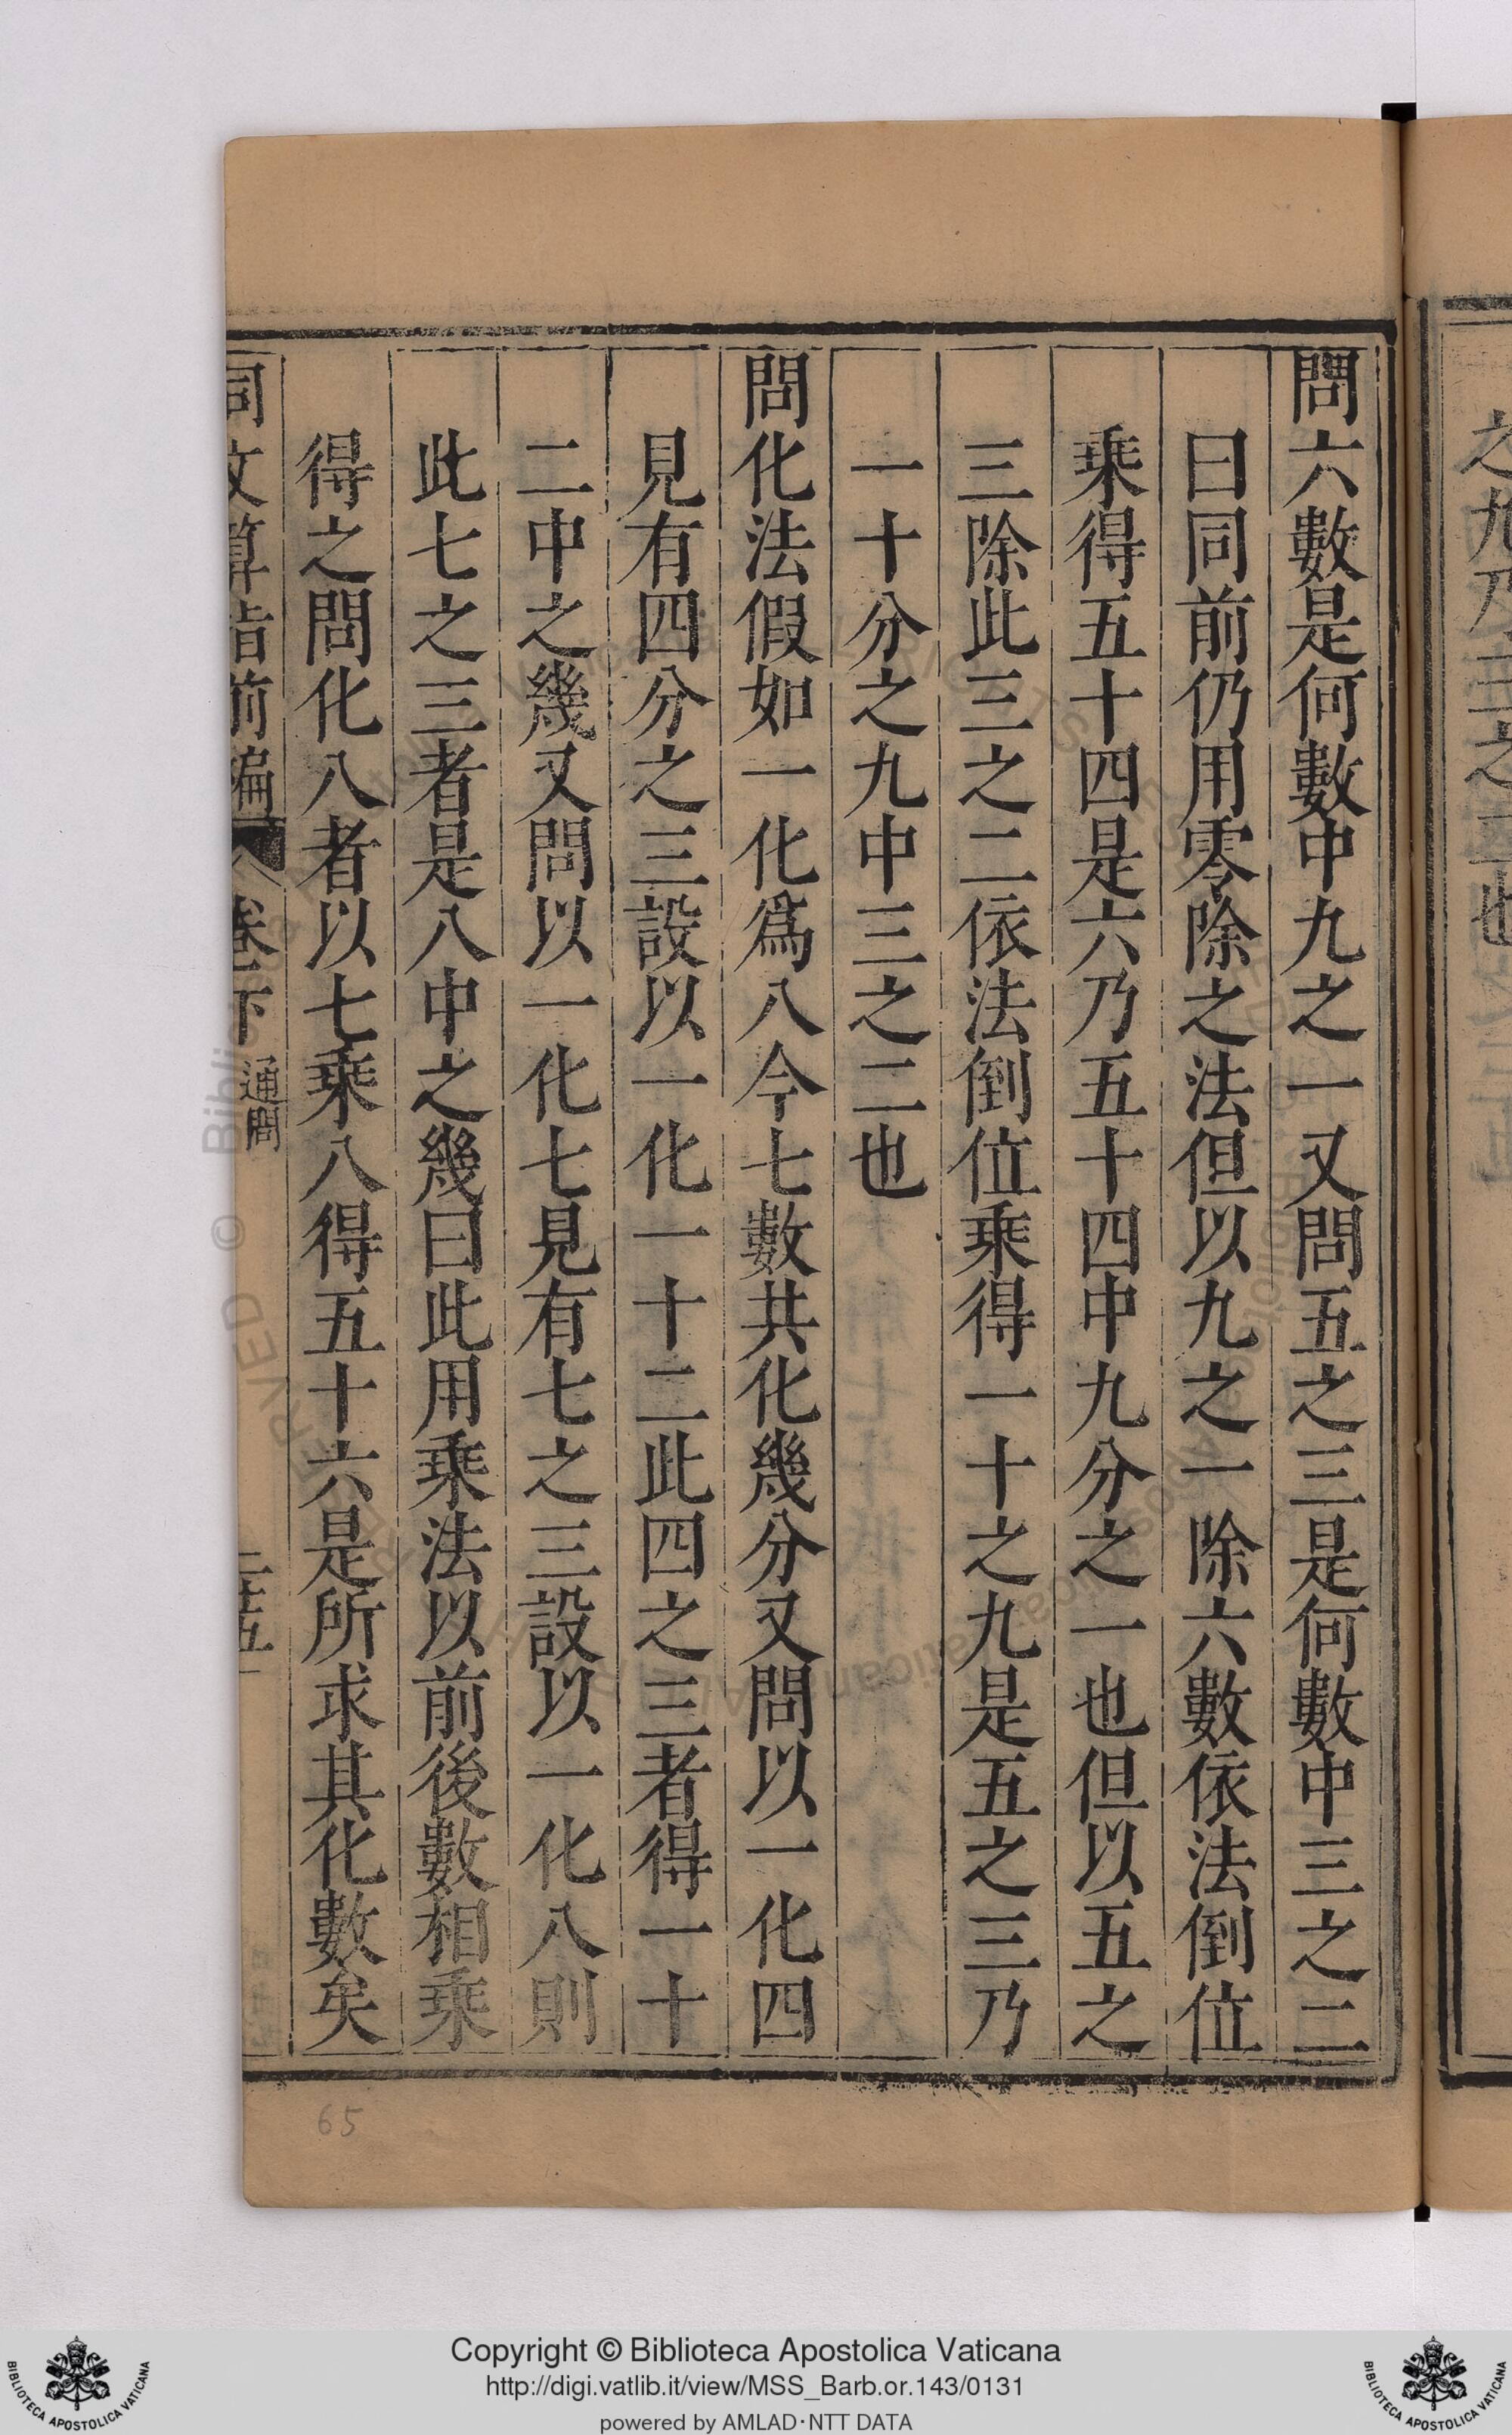 問六數是何數中九之一又問五之三是何數中三之二
曰同前仍用零除之法但以九之一除六數依法倒位
乗得五十四是六乃五十四中九分之一也但以五之
三除此三之二依法倒位乗得一十之九是五之三乃
一十分之九中三之二也
問化法假如一化爲八今七數共化幾分又問以一化四
見有四分之三設以一化一十二此四之三者得一十
二中之幾又問以一化七見有七之三設以一化八則
此七之三者是八中之幾曰此用乗法以前後數相乗
得之問化八者以七乗八得五十六是所求其化數矣
同文算指前編 卷下 通問 二十五
65
之九乃三之二也
Copyright © Biblioteca Apostolica Vaticana
http://digi.vatlib.it/view/MSS_Barb.or.143/0131
powered by AMLAD·NTT DATA
BIBLIOTECA APOSTOLICA VATICANA
BIBLIOTECA APOSTOLICA VATICANA